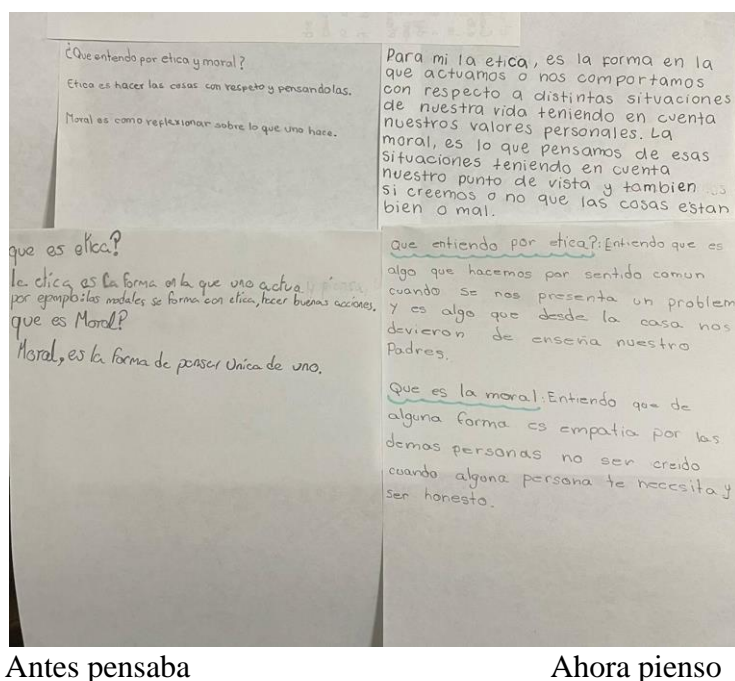 ¿Que entendo por etica y moral?
Etica es hacer las cosas con respeto y pensandolas.
Moral es como reflexionar sobre lo que uno hace.
Para mi la etica, es la forma en la
que actuamos o nos comportamos
con respecto a distintas situaciones
de nuestra vida teniendo en cuenta
nuestros valores personales. La
moral, es lo que pensamos de esas
situaciones teniendo en cuenta
nuestro punto de vista y tambien
si creemos o no que las cosas estan
bien o mal.
que es etica?
la etica, es la forma en la que uno actua
por ejemplo: los modales se forma con etica, hacer buenas acciones.
que es Moral?
Moral, es la forma de pensar Unica de uno.
que entiendo por etica?: Entiendo que es
algo que hacemos por sentido comun
cuando se nos presenta un problem
Y es algo que desde la casa nos
devieron de enseña nuestro
Padres.
Que es la moral: Entiendo que de
alguna forma es empatia por las
demas personas no ser creido
cuando alguna persona te necesita y
ser honesto.
Antes pensaba
Ahora pienso